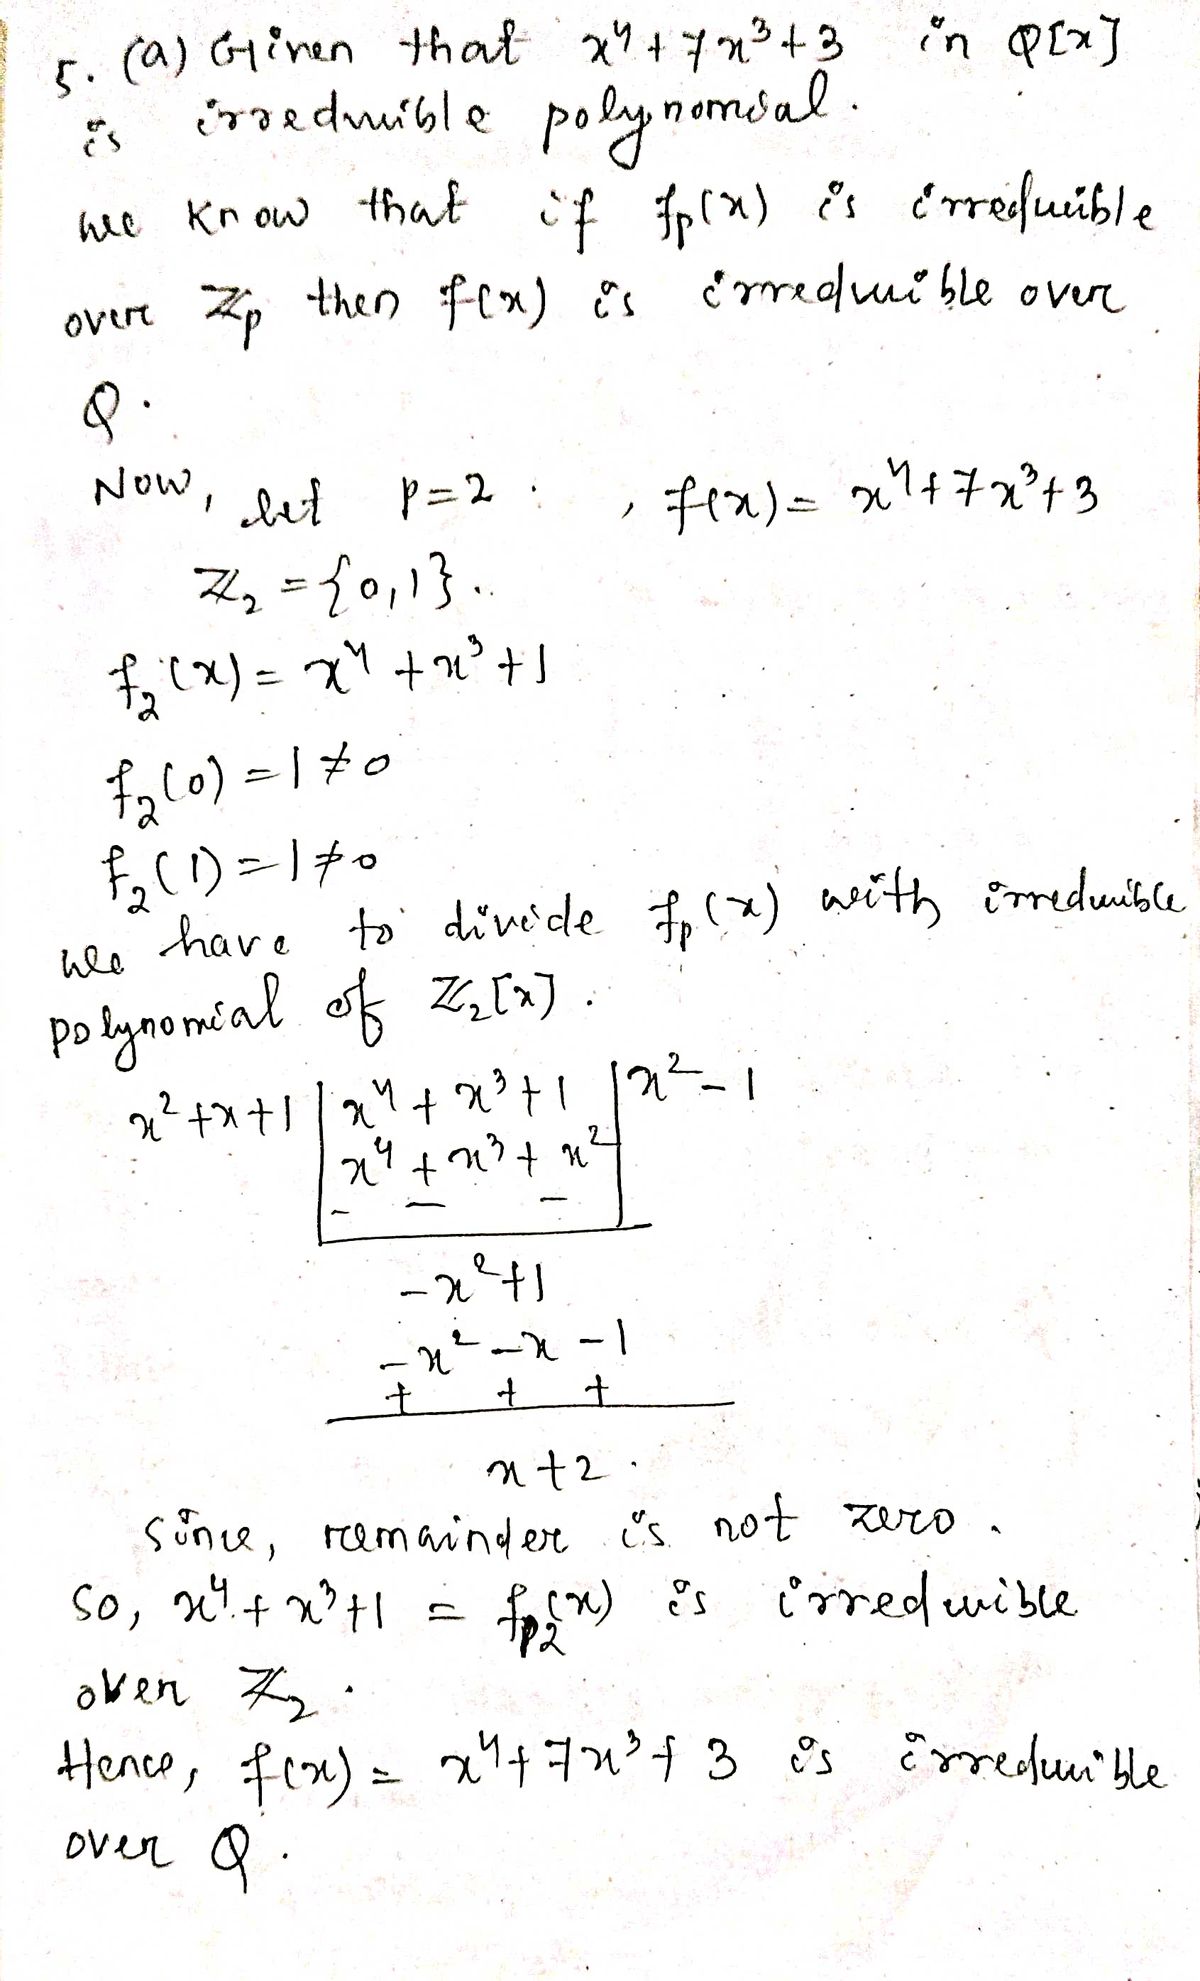 5. (a) Given that x⁴ + 7x³ + 3 in Q[x]
is irreducible polynomial.
we know that if fₚ(x) is irreducible
over ℤₚ then f(x) is irreducible over
Q.
Now, let p = 2 . , f(x) = x⁴ + 7x³ + 3
ℤ₂ = {0,1}.
f₂(x) = x⁴ + x³ + 1
f₂(0) = 1 ≠ 0
f₂(1) = 1 ≠ 0
we have to divide fₚ(x) with irreducible
polynomial of ℤ₂[x] .
x² + x + 1 | x⁴ + x³ + 1 | x² - 1
x⁴ + x³ + x²
- - -
-x² + 1
-x² - x - 1
+ + +
x + 2 .
Since, remainder is not zero .
So, x⁴ + x³ + 1 = f₂(x) is irreducible
over ℤ₂ .
Hence, f(x) = x⁴ + 7x³ + 3 is irreducible
over Q .